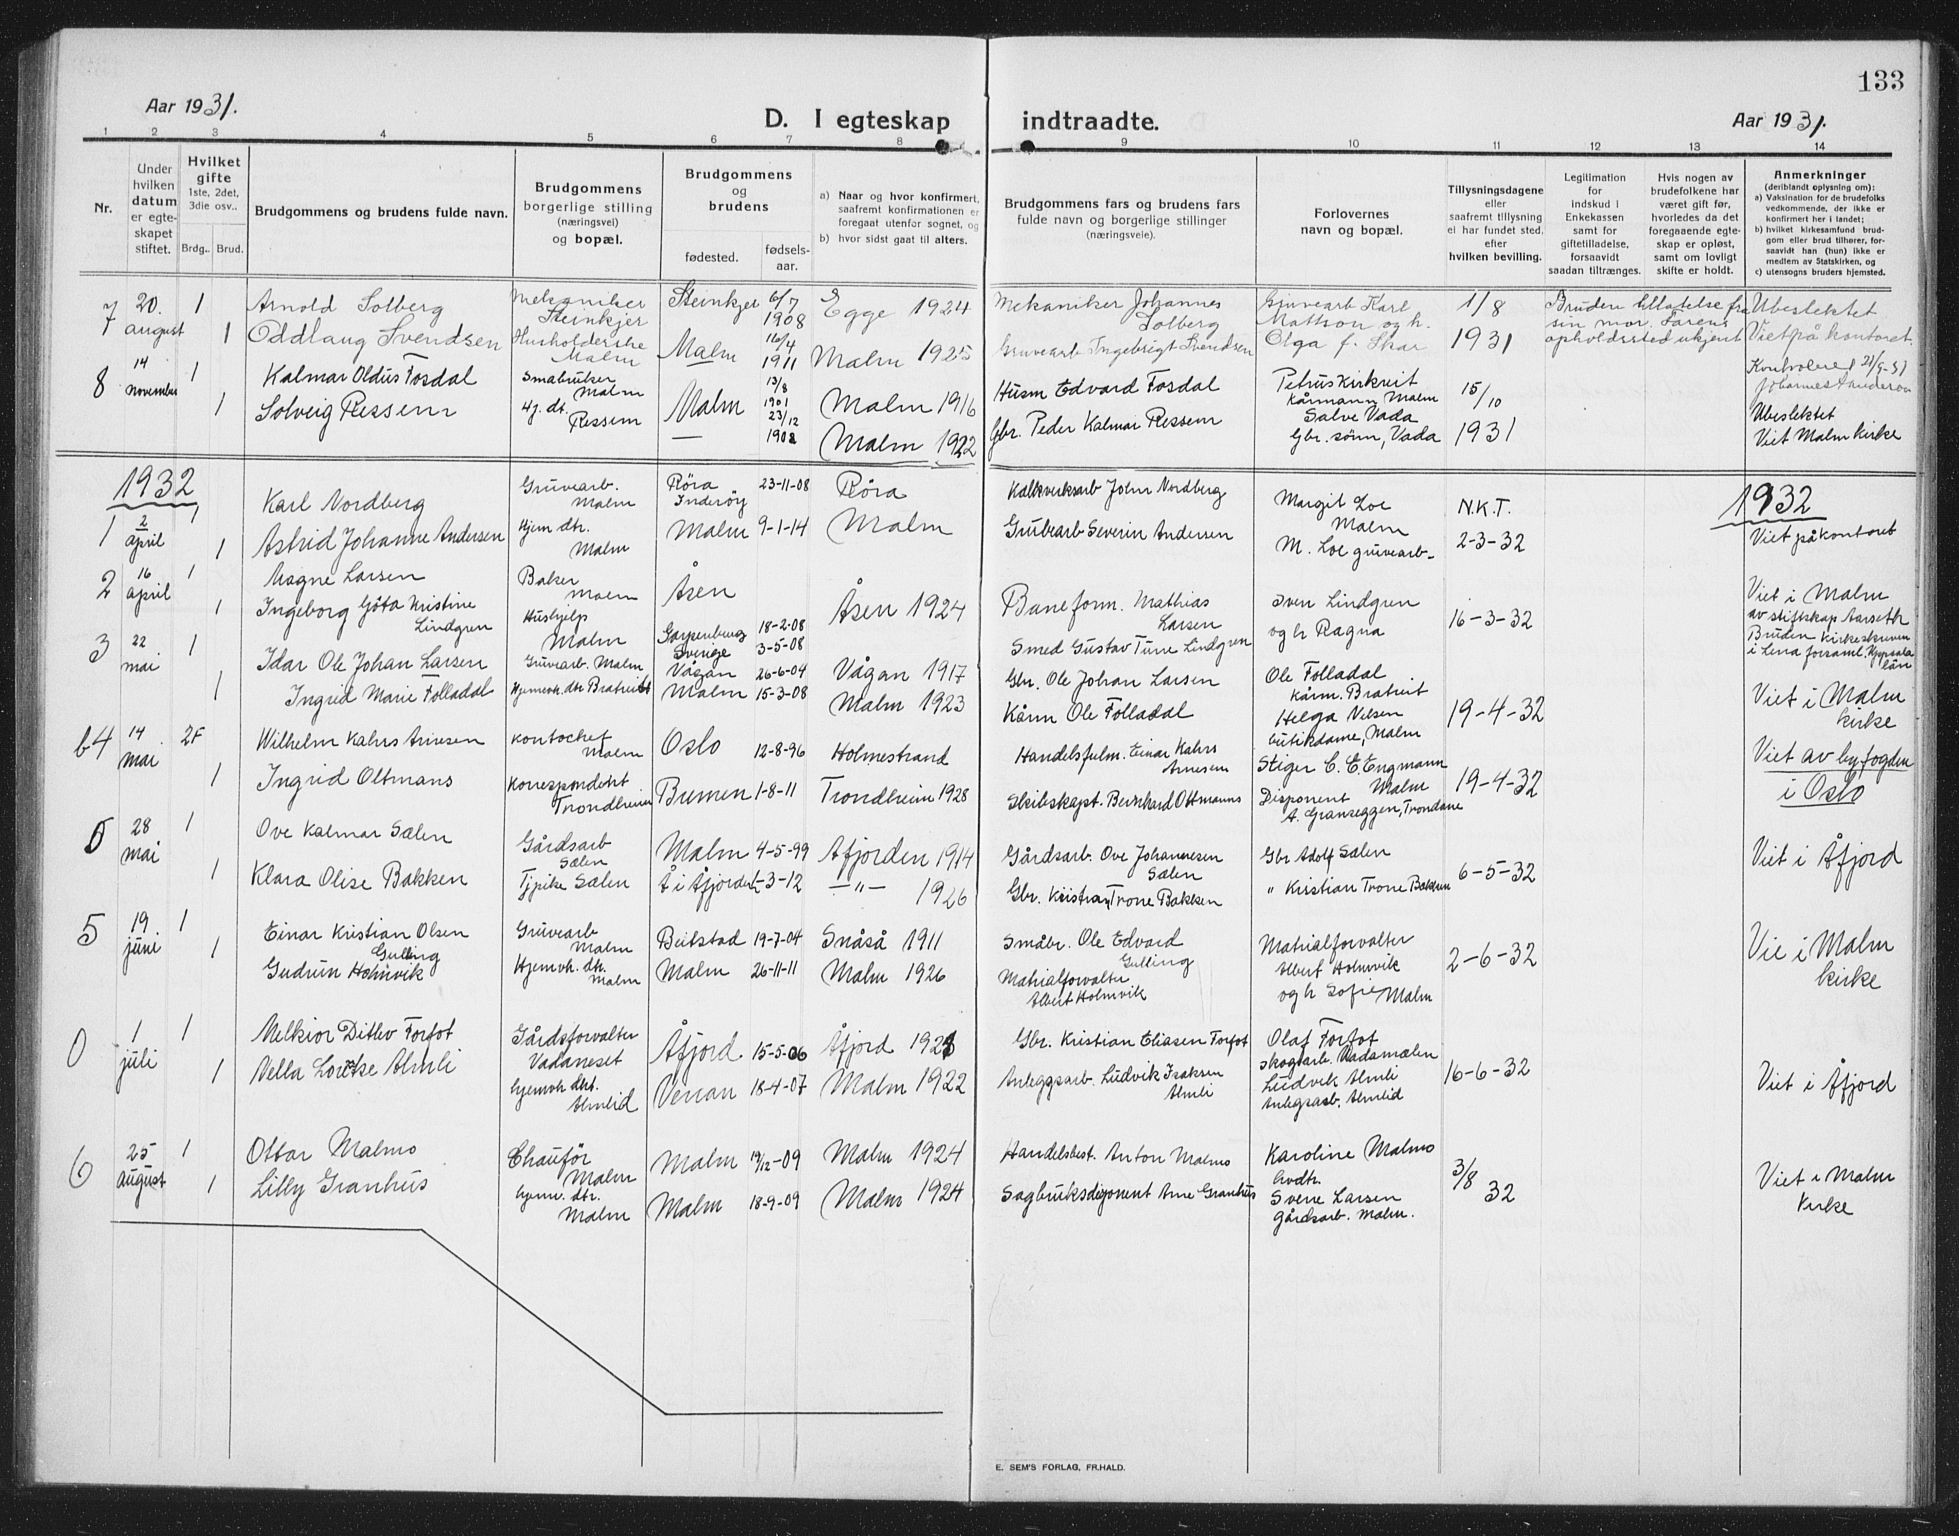 133
Aar 1931.
D. I egteskap indtraadte.
Aar 1931.
1 2 3 4 5 6 7 8 9 10 11 12 13 14
Nr.
Under hvilken datum er egteskapet stiftet.
Hvilket gifte 1ste, 2det, 3die osv..
Brdg.. Brud.
Brudgommens og brudens fulde navn.
Brudgommens borgerlige stilling (næringsvei) og bopæl.
Brudgommens og brudens
fødested.
fødselsaar.
a) Naar og hvor konfirmert, saafremt konfirmationen er foregaat utenfor sognet, og
b) hvor sidst gaat til alters.
Brudgommens fars og brudens fars fulde navn og borgerlige stillinger (næringsveie).
Forlovernes navn og bopæl.
Tillysningsdagene eller saafremt tillysning ei har fundet sted, efter hvilken bevilling.
Legitimation for indskud i Enkekassen samt for giftetilladelse, forsaavidt saadan tiltrænges.
Hvis nogen av brudefolkene har været gift før, hvorledes da det foregaaende egteskap er opløst, samt om lovligt skifte er holdt.
Anmerkninger (deriblandt oplysning om):
a) Vaksination for de brudefolks vedkommende, der ikke er konfirmert her i landet;
b) hvilket kirkesamfund brudgom eller brud tilhører, forsaavidt han (hun) ikke er medlem av Statskirken, og
c) utensogns bruders hjemsted.
7 20. august 1 Arnold Solberg Mekaniker Steinkjer Steinkjer 6/7 1908 Egge 1924 Mekaniker Johannes Solberg Gruvearb Karl Mattson og h. 1/8 Bruden tillatelse fra sin mor. Farens opholdssted ukjent Ubeslektet
1 Oddlaug Svendsen Husholderske Malm Malm 16/4 1911 Malm 1925 Gruvearb Ingebrigt Svendsen Olga f. Skar 1931 Viet på kontoret.
Kontrolleret 21/9-31
8 14 november 1 Kalmar Oldus Fosdal Småbruker Malm Malm 13/8 1901 Malm 1916 Husm Edvard Fosdal Petrus Kirkvit Kårmann, Malm 15/10 Ubeslektet
1 Solveig Ressem Hj. dt. Ressem — 23/12 1902 Malm 1922 Gbr. Peder Kalmar Ressem Salve Vada Gbr. sønn, Vada 1931 Viet Malm kirke
1932
1932
1 2 april 1 Karl Nordberg Gruvearb. Malm Røra Inderøy 23-11-08 Røra Kalkverksarb John Nordberg Margit Loe Malm N.K.T.
1 Astrid Johanne Andersen Hjem dtr. Malm Malm 9-1-14 Malm Grubearb Severin Andersen M. Loe gruvearb- 2-3-32 Viet på kontoret
2 16 april 1 Magne Larsen Baker Malm Åsen 18-2-08 Åsen 1924 Baneform. Mathias Larsen Sven Lindgren 16-3-32 Viet i Malm av stiftskap Aarseth
1 Ingeborg Göta Kristine Lindgren Hushjelp Malm Garpenberg Sverige 3-5-08 Smed Gustav Ture Lindgren og h Ragna Bruden kirkeskreven i Lena forsaml. Uppsala län
3 22 mai 1 Idar Ole Johan Larsen Gruvearb. Malm Vågan 26-6-04 Vågan 1917 Gbr. Ole Johan Larsen Ole Folladal kårm. Bratreit 19-4-32 Viet i Malm kirke
1 Ingrid Marie Folladal Hjemevh. dtr Bratreit Malm 15-3-08 Malm 1923 Kårm Ole Folladal Helga Nilsen butikdame, Malm
b4 14 mai 2F Wilhelm Kahrs Arnesen Kontorchef Malm Oslo 12-8-96 Holmestrand Handelsfulm. Einar Kahrs Arnesen Stiger C. E. Engmann Malm 19-4-32 Viet av byfogden i Oslo
1 Ingrid Oltmans Korrespondent Trondheim Bremen 1-8-11 Trondheim 1928 Skibskapt. Bernhard Oltmanns Disponent A. Granseggen, Trondane
28 mai 1 Ove Kalmar Sælen Gårdsarb Sælen Malm 4-5-99 Åfjorden 1914 Gårdsarb. Ove Johannesen Sælen Gbr Adolf Sælen 6-5-32 Viet i Åfjord
1 Klara Olise Bakken Tjpike Sælen Å i Åfjorden -3-12 —"— 1926 Gbr. Kristian Trone Bakken " Kristian Trone Bakken
5 19 juni 1 Einar Kristian Olsen Gulling Gruvearb Malm Beitstad 19-7-04 Snåså 1911 Småbr. Ole Edvard Gulling Matrialforvalter Albert Holmvik 2-6-32 Vie i Malm kirke
1 Gudrun Holmvik Hjemvh. dtr. Malm Malm 26-11-11 Malm 1926 Matrialforvalter Albert Holmvik og h Sofie Malm
0 1 juli 1 Melkior Ditlev Forfot Gårdsforvalter Vadaneset Åfjord 15-5-06 Åfjord 1921 Gbr. Kristian Eliasen Forfot Olaf Forfot skogsarb. Vadamælen 16-6-32 Viet i Åfjord
1 Nella Almli hjemvh dtr. Almlid Verran 18-4-07 Malm 1922 Anleggsarb. Ludvik Isaksen Almli Ludvik Almli Anlegsarb. Almlid
6 25 august 1 Ottar Malmo Chaufør Malm Malm 19/12-09 Malm 1924 Handelsbest. Anton Malmo Karoline Malmo 3/8 Viet i Malm kirke
1 Lilly Granhus hjemv. dtr. Malm Malm 18-9-09 Malm 1924 Sagbruksdisponent Arne Granhus Sverre Larsen gårdsarb. Malm. 32
E. SEM'S FORLAG, FR.HALD.